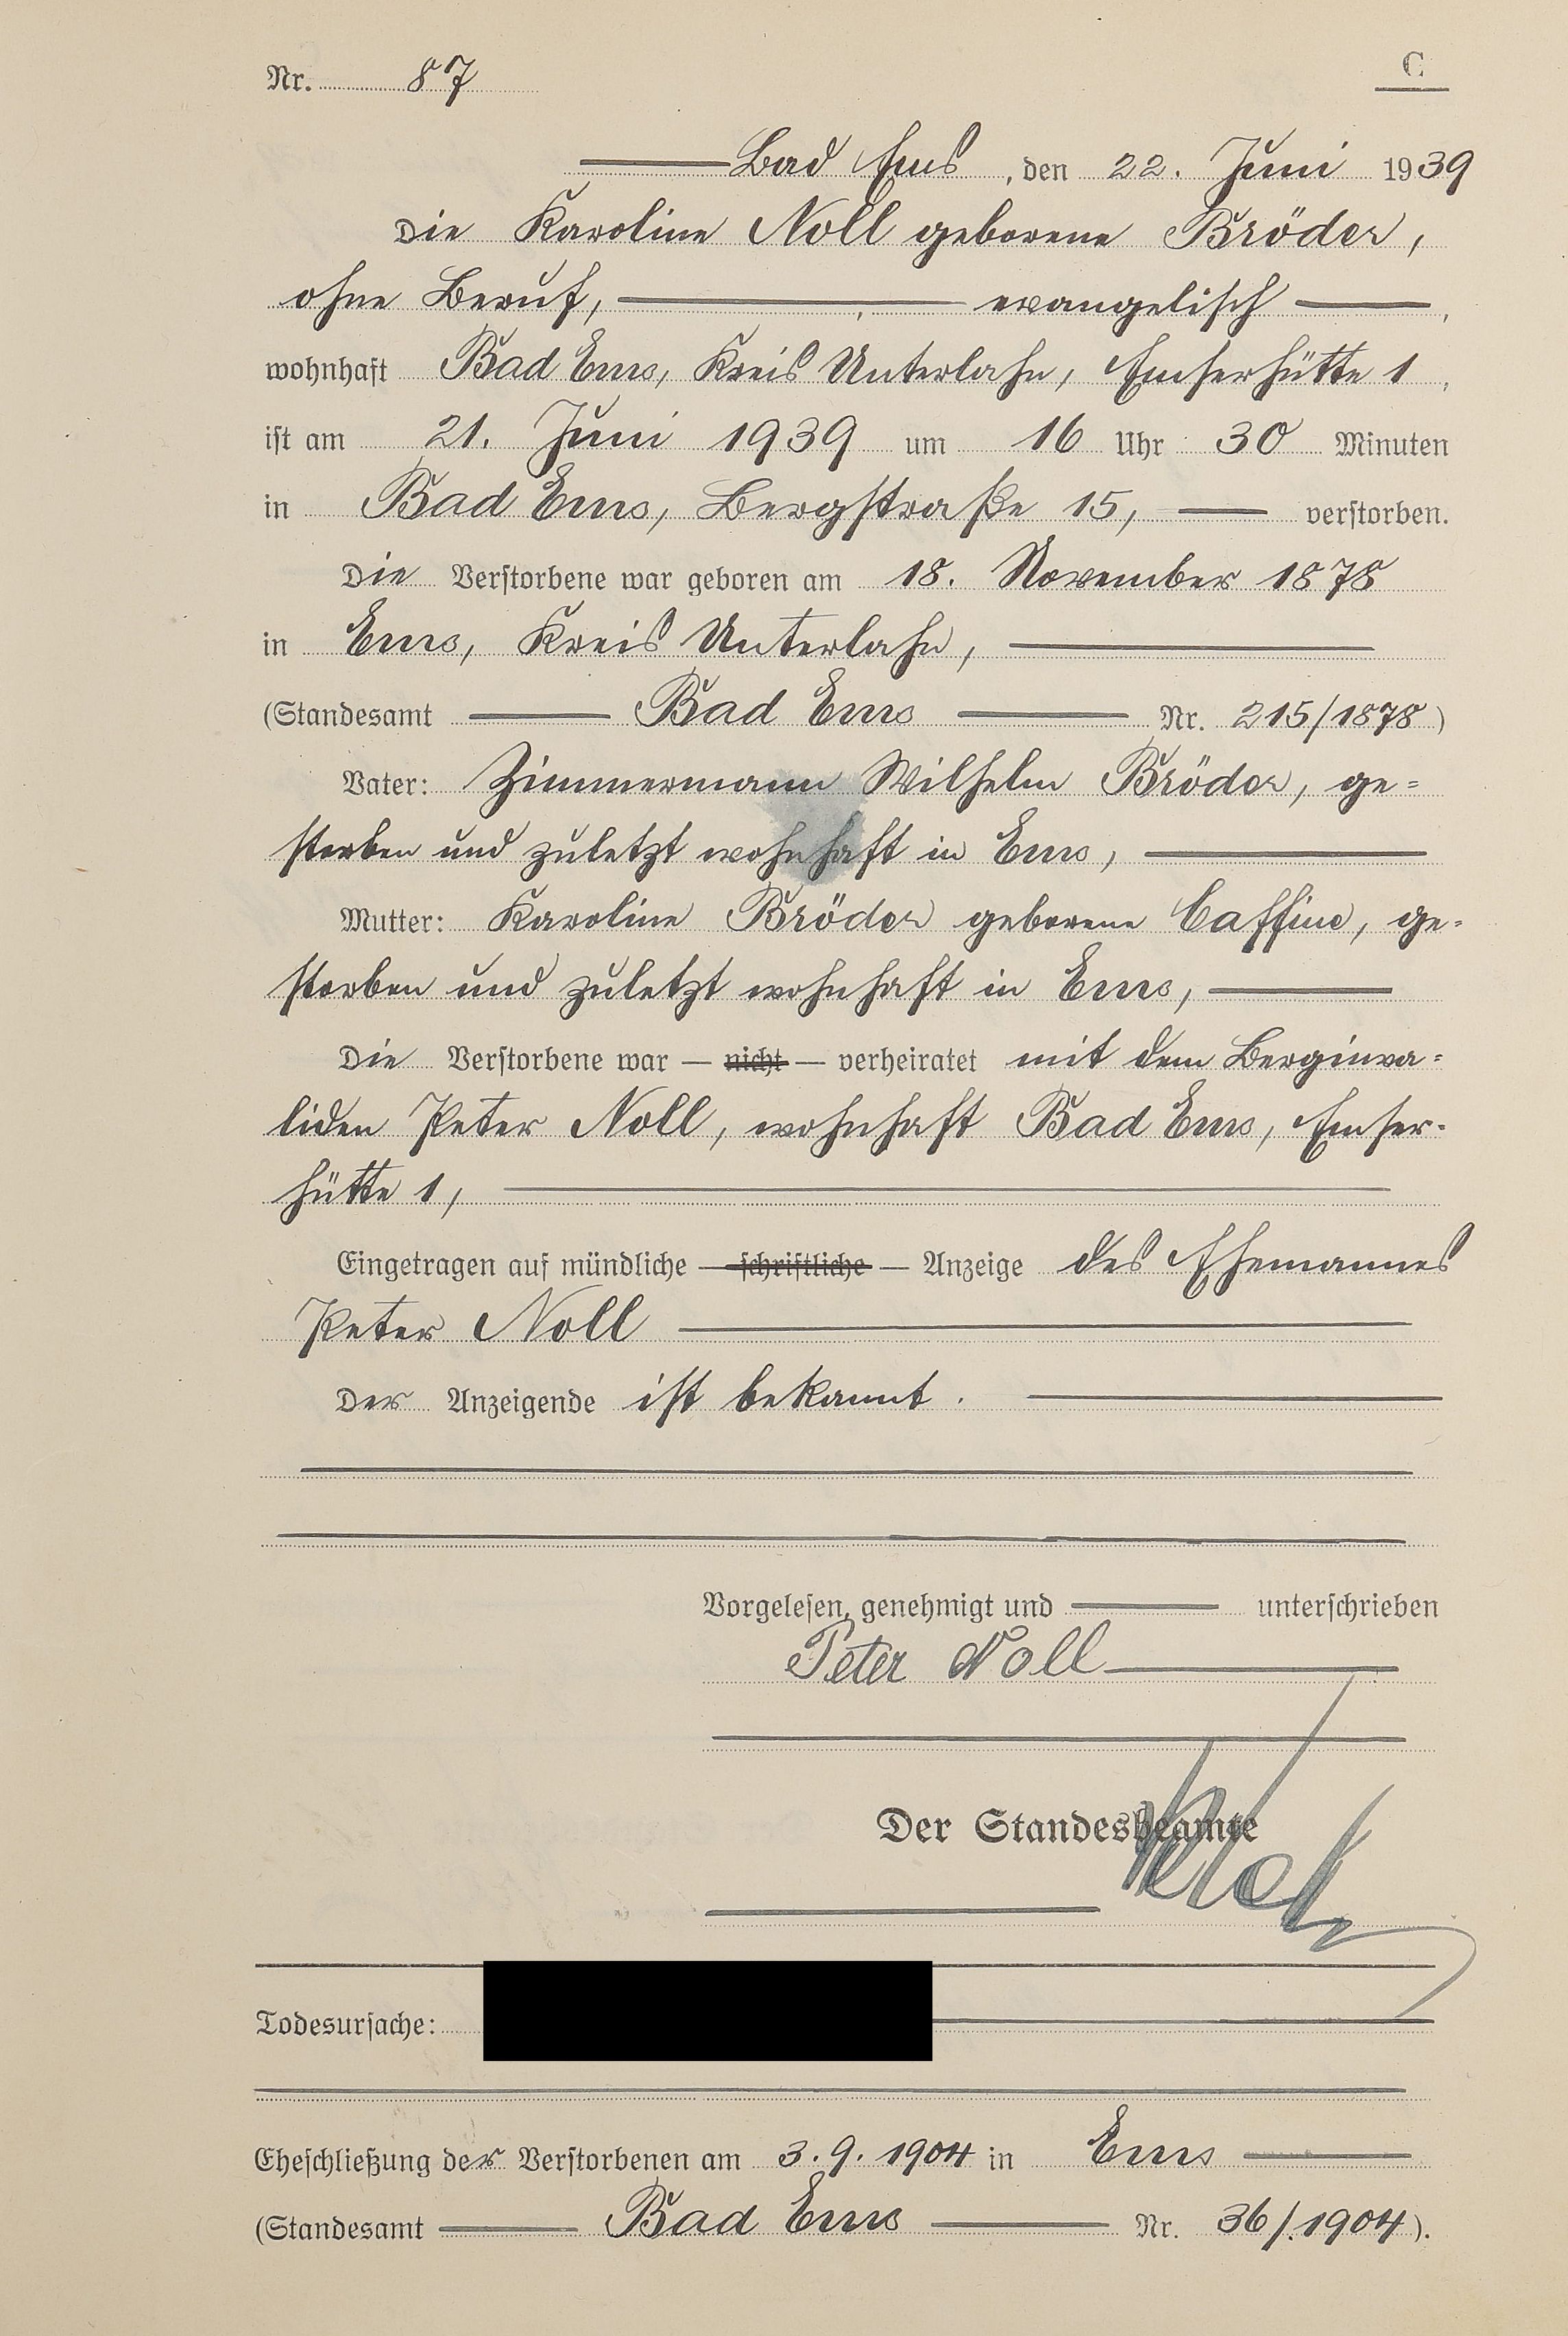 Nr. 87
C
Bad Ems, den 22. Juni 1939
Die Karoline Noll geborene Bröder,
ohne Beruf, evangelisch,
wohnhaft Bad Ems, Kreis Unterlahn, Emserhütte 1,
ist am 21. Juni 1939 um 16 Uhr 30 Minuten
in Bad Ems, Bergstraße 15, verstorben.
Die Verstorbene war geboren am 18. November 1878
in Ems, Kreis Unterlahn,
(Standesamt Bad Ems Nr. 215/1878)
Vater: Zimmermann Wilhelm Bröder, ge=
storben und zuletzt wohnhaft in Ems,
Mutter: Karoline Bröder geborene Caffine, ge-
storben und zuletzt wohnhaft in Ems,
Die Verstorbene war — nicht — verheiratet mit dem Berginva=
liden Peter Noll, wohnhaft Bad Ems, Emser-
hütte 1,
Eingetragen auf mündliche — schriftliche — Anzeige des Ehemannes
Peter Noll
Der Anzeigende ist bekannt.
Vorgelesen, genehmigt und unterschrieben
Peter Noll
Der Standesbeamte
Todesursache:
Eheschließung der Verstorbenen am 3.9.1904 in Ems
(Standesamt Bad Ems Nr. 36/.1904).